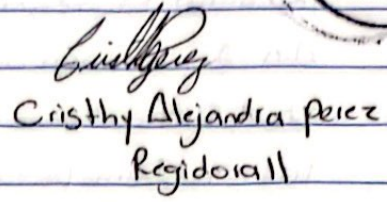 Cristhy Alejandra Perez
Regidora II